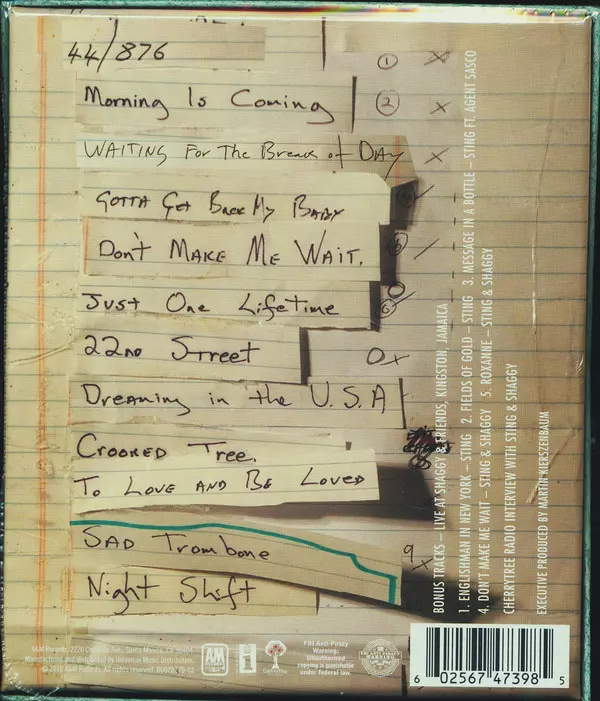 44/876
1 x
Morning Is Coming
2 x
WAITING For The Break of DAY
x
GOTTA Get Back My BABY
Don't MAKE ME WAIT.
Just One Lifetime
22nd Street
Ox
Dreaming in the U.S.A
CROOKED Tree.
To Love AND BE Loved
SAD Trombone
9 x
Night Shift
BONUS TRACKS – LIVE AT SHAGGY & FRIENDS, KINGSTON, JAMAICA
1. ENGLISHMAN IN NEW YORK – STING 2. FIELDS OF GOLD – STING 3. MESSAGE IN A BOTTLE – STING FT. AGENT SASCO
4. DON'T MAKE ME WAIT – STING & SHAGGY 5. ROXANNE – STING & SHAGGY
CHERRYTREE RADIO INTERVIEW WITH STING & SHAGGY
EXECUTIVE PRODUCED BY MARTIN KIERSZENBAUM
A&M Records, 2220 Colorado Ave., Santa Monica, CA 90404
Manufactured and distributed by Universal Music Distribution.
© 2018 A&M Records. All rights reserved.
A&M
FBI Anti-Piracy
Warning:
Unauthorized
copying is punishable
under federal law.
6 02567 47398 5